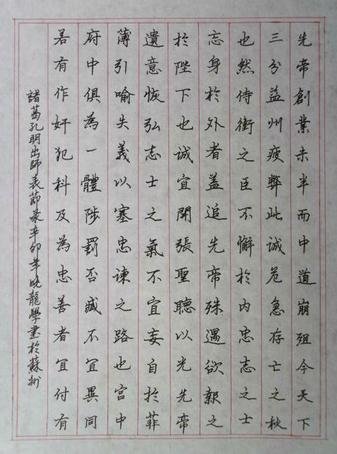 先帝創業未半而中道崩殂今天下
三分益州疲弊此誠危急存亡之秋
也然侍衛之臣不懈於內忠志之士
忘身於外者蓋追先帝殊遇欲報之
於陛下也誠宜開張聖聽以光先帝
遺意恢弘志士之氣不宜妄自於菲
薄引喻失義以塞忠諫之路也宮中
府中俱為一體陟罰否臧不宜異同
若有作奸犯科及為忠善者宜付有
諸葛孔明出師表節录辛卯年曉龍學書於蘇州